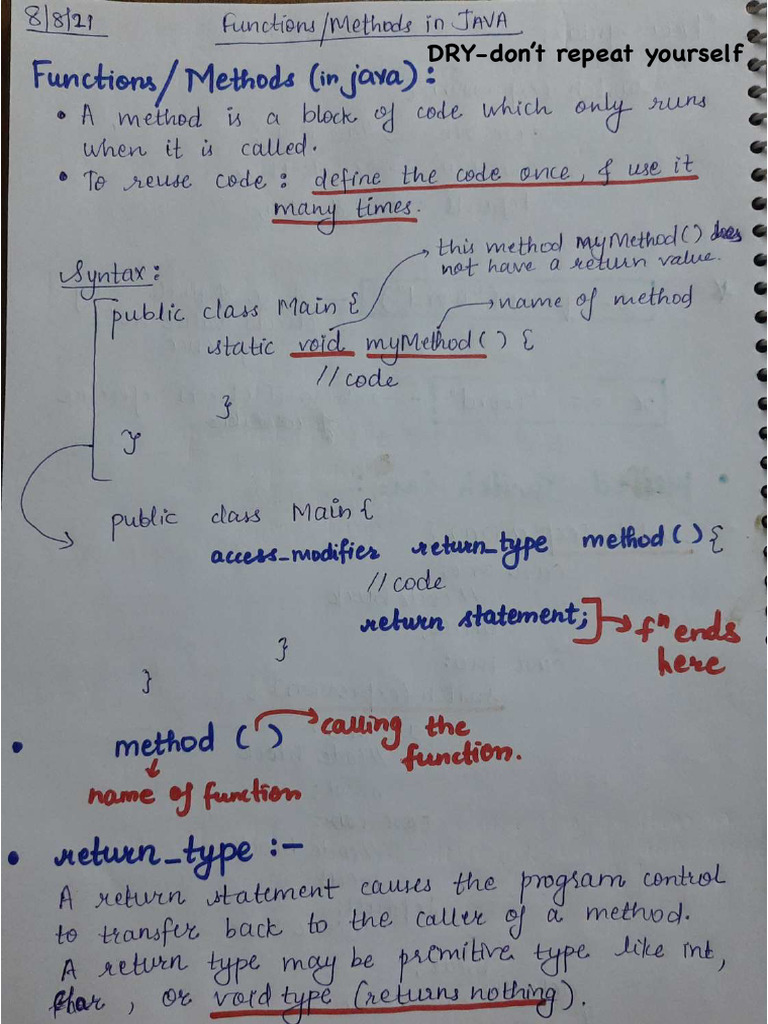 8/8/21
Functions/Methods in JAVA
DRY-don't repeat yourself
Functions/Methods (in java) :
• A method is a block of code which only runs
when it is called.
• To reuse code : define the code once, & use it
many times.
this method myMethod() does
not have a return value.
Syntax :
public class Main {
→ name of method
static void myMethod() {
//code
}
}
public class Main {
access_modifier return_type method() {
//code
return statement;
→ fⁿ ends
here
}
}
• method ()
calling the
function.
name of function
• return_type :-
A return statement causes the program control
to transfer back to the caller of a method.
A return type may be premitive type like int,
char, or void type (returns nothing).